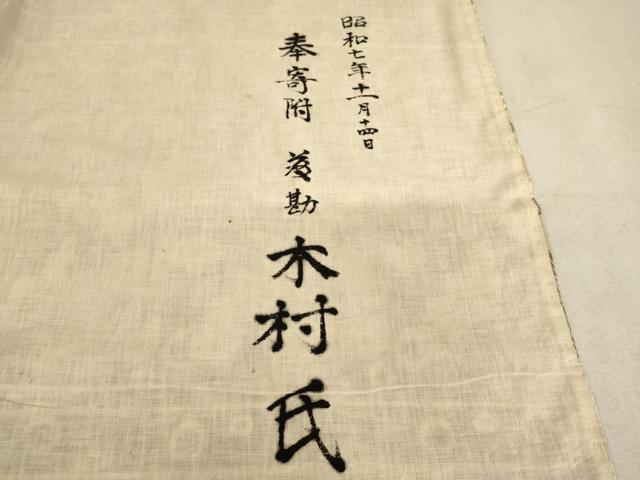 昭和七年十一月十四日
奉寄附 菱勘 木村氏